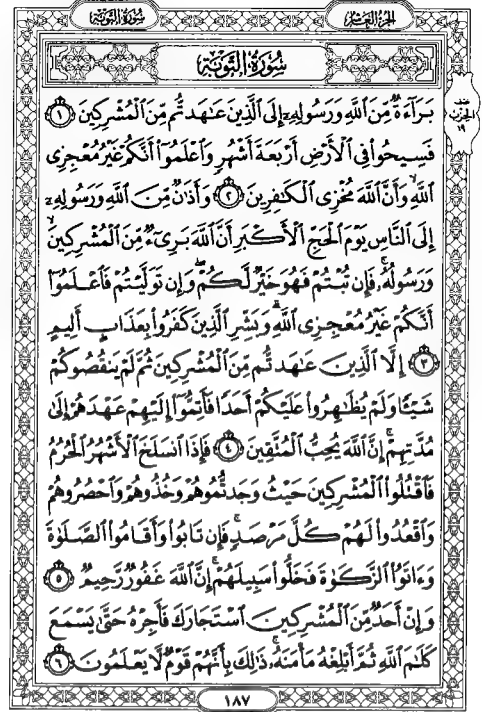 الجزء العاشر
سورة التوبة
سُورَةُ التَّوْبَةِ
بَرَآءَةٌ مِّنَ ٱللَّهِ وَرَسُولِهِۦٓ إِلَى ٱلَّذِينَ عَٰهَدتُّم مِّنَ ٱلْمُشْرِكِينَ ١
فَسِيحُوا۟ فِى ٱلْأَرْضِ أَرْبَعَةَ أَشْهُرٍ وَٱعْلَمُوٓا۟ أَنَّكُمْ غَيْرُ مُعْجِزِى
ٱللَّهِ ۙ وَأَنَّ ٱللَّهَ مُخْزِى ٱلْكَٰفِرِينَ ٢ وَأَذَٰنٌ مِّنَ ٱللَّهِ وَرَسُولِهِۦٓ
إِلَى ٱلنَّاسِ يَوْمَ ٱلْحَجِّ ٱلْأَكْبَرِ أَنَّ ٱللَّهَ بَرِىٓءٌ مِّنَ ٱلْمُشْرِكِينَ ۙ
وَرَسُولُهُۥ ۚ فَإِن تُبْتُمْ فَهُوَ خَيْرٌ لَّكُمْ ۖ وَإِن تَوَلَّيْتُمْ فَٱعْلَمُوٓا۟
أَنَّكُمْ غَيْرُ مُعْجِزِى ٱللَّهِ ۗ وَبَشِّرِ ٱلَّذِينَ كَفَرُوا۟ بِعَذَابٍ أَلِيمٍ
٣ إِلَّا ٱلَّذِينَ عَٰهَدتُّم مِّنَ ٱلْمُشْرِكِينَ ثُمَّ لَمْ يَنقُصُوكُمْ
شَيْـًٔا وَلَمْ يُظَٰهِرُوا۟ عَلَيْكُمْ أَحَدًا فَأَتِمُّوٓا۟ إِلَيْهِمْ عَهْدَهُمْ إِلَىٰ
مُدَّتِهِمْ ۚ إِنَّ ٱللَّهَ يُحِبُّ ٱلْمُتَّقِينَ ٤ فَإِذَا ٱنسَلَخَ ٱلْأَشْهُرُ ٱلْحُرُمُ
فَٱقْتُلُوا۟ ٱلْمُشْرِكِينَ حَيْثُ وَجَدتُّمُوهُمْ وَخُذُوهُمْ وَٱحْصُرُوهُمْ
وَٱقْعُدُوا۟ لَهُمْ كُلَّ مَرْصَدٍ ۚ فَإِن تَابُوا۟ وَأَقَامُوا۟ ٱلصَّلَوٰةَ
وَءَاتَوُا۟ ٱلزَّكَوٰةَ فَخَلُّوا۟ سَبِيلَهُمْ ۚ إِنَّ ٱللَّهَ غَفُورٌ رَّحِيمٌ ٥
وَإِنْ أَحَدٌ مِّنَ ٱلْمُشْرِكِينَ ٱسْتَجَارَكَ فَأَجِرْهُ حَتَّىٰ يَسْمَعَ
كَلَٰمَ ٱللَّهِ ثُمَّ أَبْلِغْهُ مَأْمَنَهُۥ ۚ ذَٰلِكَ بِأَنَّهُمْ قَوْمٌ لَّا يَعْلَمُونَ ٦
نصف
الحزب
١٩
١٨٧